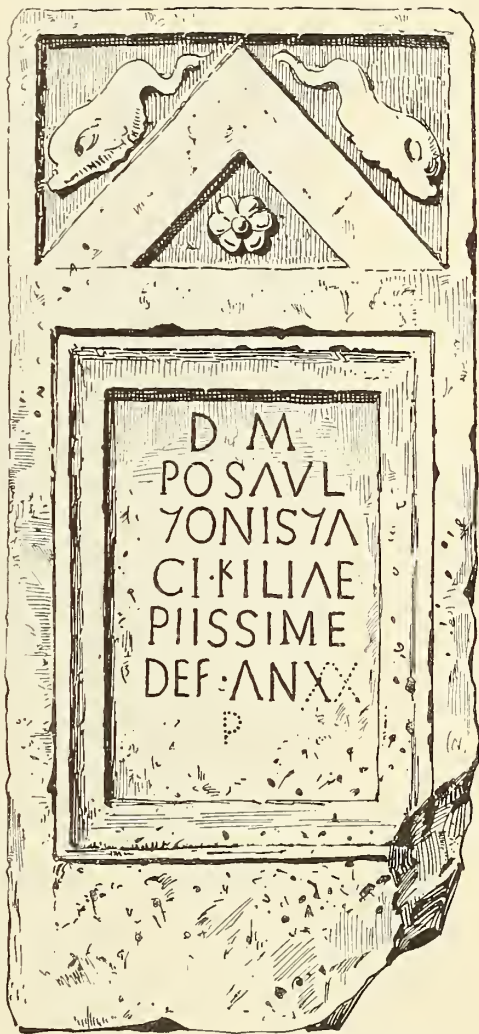 D M
POSAVL
YONISYA
CI·FILIAE
PIISSIME
DEF·ANXX
P